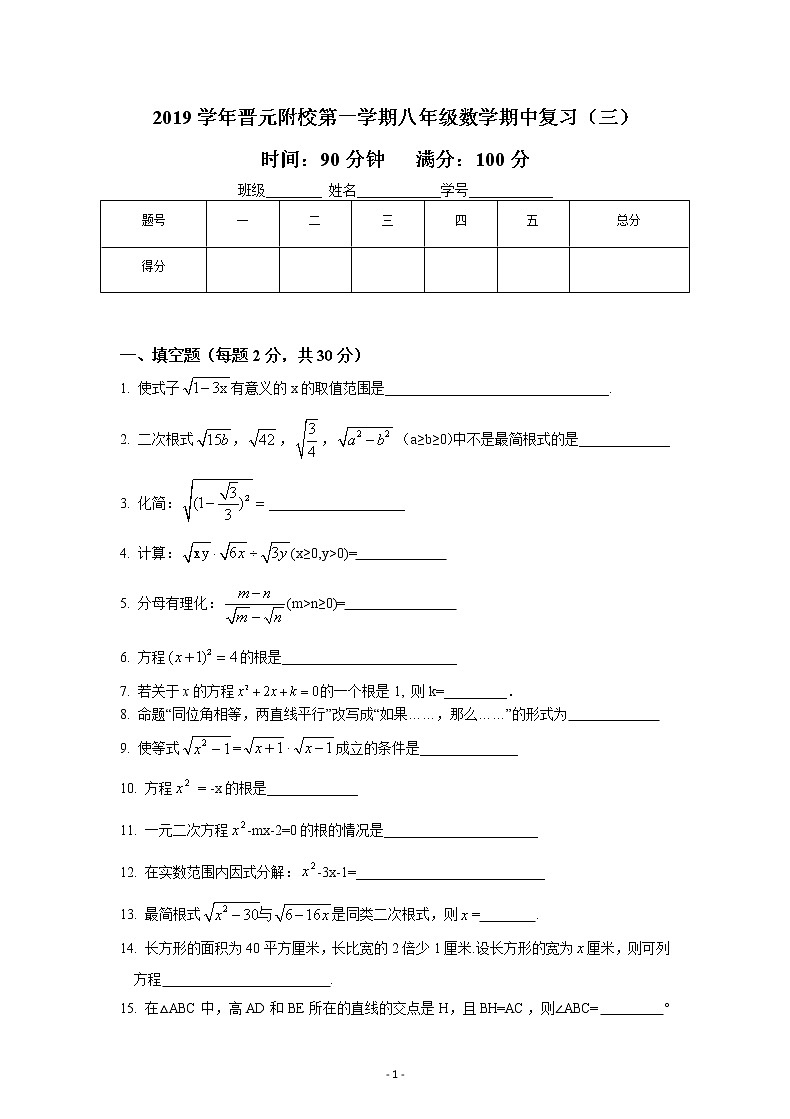 2019 学年晋元附校第一学期八年级数学期中复习（三）
时间：90 分钟 满分：100 分
班级________ 姓名____________学号____________
题号 一 二 三 四 五 总分
得分
一、填空题（每题 2 分，共 30 分）
1. 使式子 √(1−3x) 有意义的 x 的取值范围是________________________________.
2. 二次根式 √(15b) ， √42 ， √(3/4) ， √(a²−b²) （a≥b≥0)中不是最简根式的是_____________
3. 化简：√((1−√3/3)²) = ____________________
4. 计算：√(xy) · √(6x) ÷ √(3y) (x≥0,y>0)=_____________
5. 分母有理化：(m−n)/(√m−√n) (m>n≥0)=________________
6. 方程 (x+1)² = 4 的根是_________________________
7. 若关于 x 的方程 x²+2x+k=0 的一个根是 1, 则 k=_________.
8. 命题“同位角相等，两直线平行”改写成“如果……，那么……”的形式为_____________
9. 使等式 √(x²−1) = √(x+1) · √(x−1) 成立的条件是______________
10. 方程 x² = -x 的根是_____________
11. 一元二次方程 x²-mx-2=0 的根的情况是______________________
12. 在实数范围内因式分解：x²-3x-1=___________________________
13. 最简根式 √(x²−30) 与 √(6−16x) 是同类二次根式，则 x =________.
14. 长方形的面积为 40 平方厘米，长比宽的 2 倍少 1 厘米.设长方形的宽为 x 厘米，则可列
方程________________________.
15. 在△ABC 中，高 AD 和 BE 所在的直线的交点是 H，且 BH=AC，则∠ABC= _________°
- 1 -